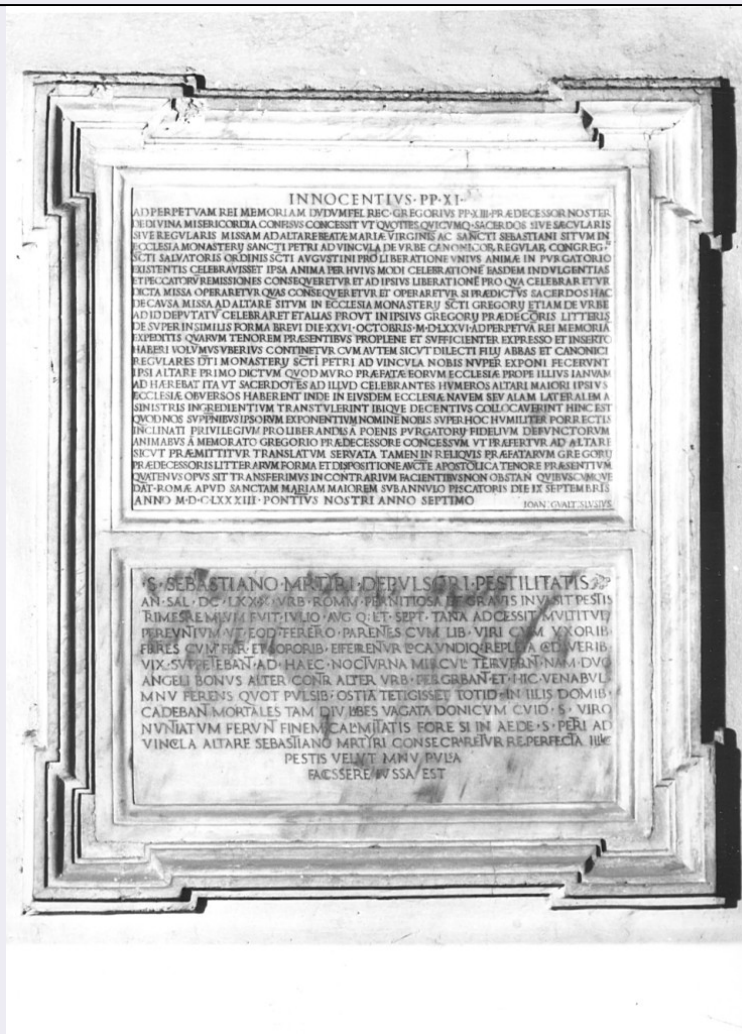 INNOCENTIVS·PP·XI·
AD PERPETVAM REI MEMORIAM DVDVM FEL REC·GREGORIVS PP·XIII·PRÆDECESSOR NOSTER
DE DIVINA MISERICORDIA CONFISVS CONCESSIT VT QVOTIES QVICVMQ·SACERDOS SIVE SÆCVLARIS
SIVE REGVLARIS MISSAM AD ALTARE BEATÆ MARIÆ VIRGINIS AC SANCTI SEBASTIANI SITVM IN
ECCLESIA MONASTERIJ SANCTI PETRI AD VINCVLA DE VRBE CANONICOR REGVLAR CONGREG·
SCTI SALVATORIS ORDINIS SCTI AVGVSTINI PRO LIBERATIONE VNIVS ANIMÆ IN PVRGATORIO
EXISTENTIS CELEBRAVISSET IPSA ANIMA PER HVIVS MODI CELEBRATIONĒ EASDEM INDVLGENTIAS
ET PECCATORV̄ REMISSIONES CONSEQVERETVR ET AD IPSIVS LIBERATIONĒ PRO QVA CELEBRARETVR
DICTA MISSA OPERARETVR QVAS CONSEQVERETVR ET OPERARETVR SI PRÆDICTVS SACERDOS HAC
DE CAVSA MISSA AD ALTARE SITVM IN ECCLESIA MONASTERIJ SCTI GREGORIJ ETIAM DE VRBE
AD ID DEPVTATV̄ CELEBRARET ET ALIAS PROVT IN IPSIVS GREGORIJ PRÆDECORIS LITTERIS
DE SVPER IN SIMILIS FORMA BREVI DIE·XXVI·OCTOBRIS·M·DLXXVI·AD PERPETVĀ REI MEMORIĀ
EXPEDITIS QVARVM TENOREM PRÆSENTIBVS PRO PLENE ET SVFFICIENTER EXPRESSO ET INSERTO
HABERI VOLVMVS VBERIVS CONTINETVR CVM AVTEM SICVT DILECTI FILIJ ABBAS ET CANONICI
REGVLARES DTI MONASTERIJ SCTI PETRI AD VINCVLA NOBIS NVPER EXPONI FECERVNT
IPSI ALTARE PRIMO DICTVM QVOD MVRO PRÆFATÆ EORVM ECCLESIÆ PROPE ILLIVS IANVAM
AD HÆREBAT ITA VT SACERDOTES AD ILLVD CELEBRANTES HVMEROS ALTARI MAIORI IPSIVS
ECCLESIÆ OBVERSOS HABERENT INDE IN EIVSDEM ECCLESIÆ NAVEM SEV ALAM LATERALEM A
SINISTRIS INGREDIENTIVM TRANSTVLERINT IBIQVE DECENTIVS COLLOCAVERINT HINC EST
QVOD NOS SVPPNIBVS IPSORVM EXPONENTIVM NOMINE NOBIS SVPER HOC HVMILITER PORRECTIS
INCLINATI PRIVILEGIVM PRO LIBERANDIS A POENIS PVRGATORIJ FIDELIVM DEFVNCTORVM
ANIMABVS Á MEMORATO GREGORIO PRÆDECESSORE CONCESSVM VT PRÆFERTVR AD ALTARE
SICVT PRÆMITTITVR TRANSLATVM SERVATA TAMEN IN RELIQVIS PRÆFATARVM GREGORIJ
PRÆDECESSORIS LITTERARVM FORMA ET DISPOSITIONE AVCTE APOSTOLICA TENORE PRÆSENTIVM
QVATENVS OPVS SIT TRANSFERIMVS IN CONTRARIVM FACIENTIBVS NON OBSTAN QVIBVSCVMQVE
DAT·ROMÆ APVD SANCTAM MARIAM MAIOREM SVB ANNVLO PISCATORIS DIE IX SEPTEMBRIS
ANNO M·D·C·LXXXIII·PONTIVS NOSTRI ANNO SEPTIMO
IOAN·GVALT·SLVSIVS
·S·SEBASTIANO·MRTYRI·DEPVLSORI·PESTILITATIS
AN·SAL·DC·LXXX·VRB·ROMM·PERNITIOSA ET GRAVIS INVASIT PESTIS
TRIMESRE MLVM FVIT·IVLIO·AVG Q·ET·SEPT·TANA ADCESSIT MVLTITVD
PEREVNTIVM VT EOD FERERO·PARENES CVM LIB·VIRI CVM VXORIB
FRRES CVM FRR·ET SORORIB·EFFERENVR LOCA VNDIQ REPLETA CDAVERIB
VIX·SVPPETEBAN·AD·HAEC·NOCTVRNA MIRCVL TERVERN·NAM·DVO
ANGELI BONVS ALTER·CONR ALTER VRB·PELGRBAN·ET·HIC·VENABVL·
MNV FERENS QVOT PVLSIB·OSTIA TETIGISSET TOTID·IN ILLIS DOMIB·
CADEBAN MORTALES TAM DIV LBES VAGATA DONICVM CVID·S·VIRO
NVNTIATVM FERVN FINEM CALMITATIS FORE SI IN AEDE·S·PERI AD
VINCLA ALTARE SEBASTIANO MRTYRI CONSECRARETVR RE PERFECTA ILLIC
PESTIS VELVT MNV PVLA
FACSSERE IVSSA EST